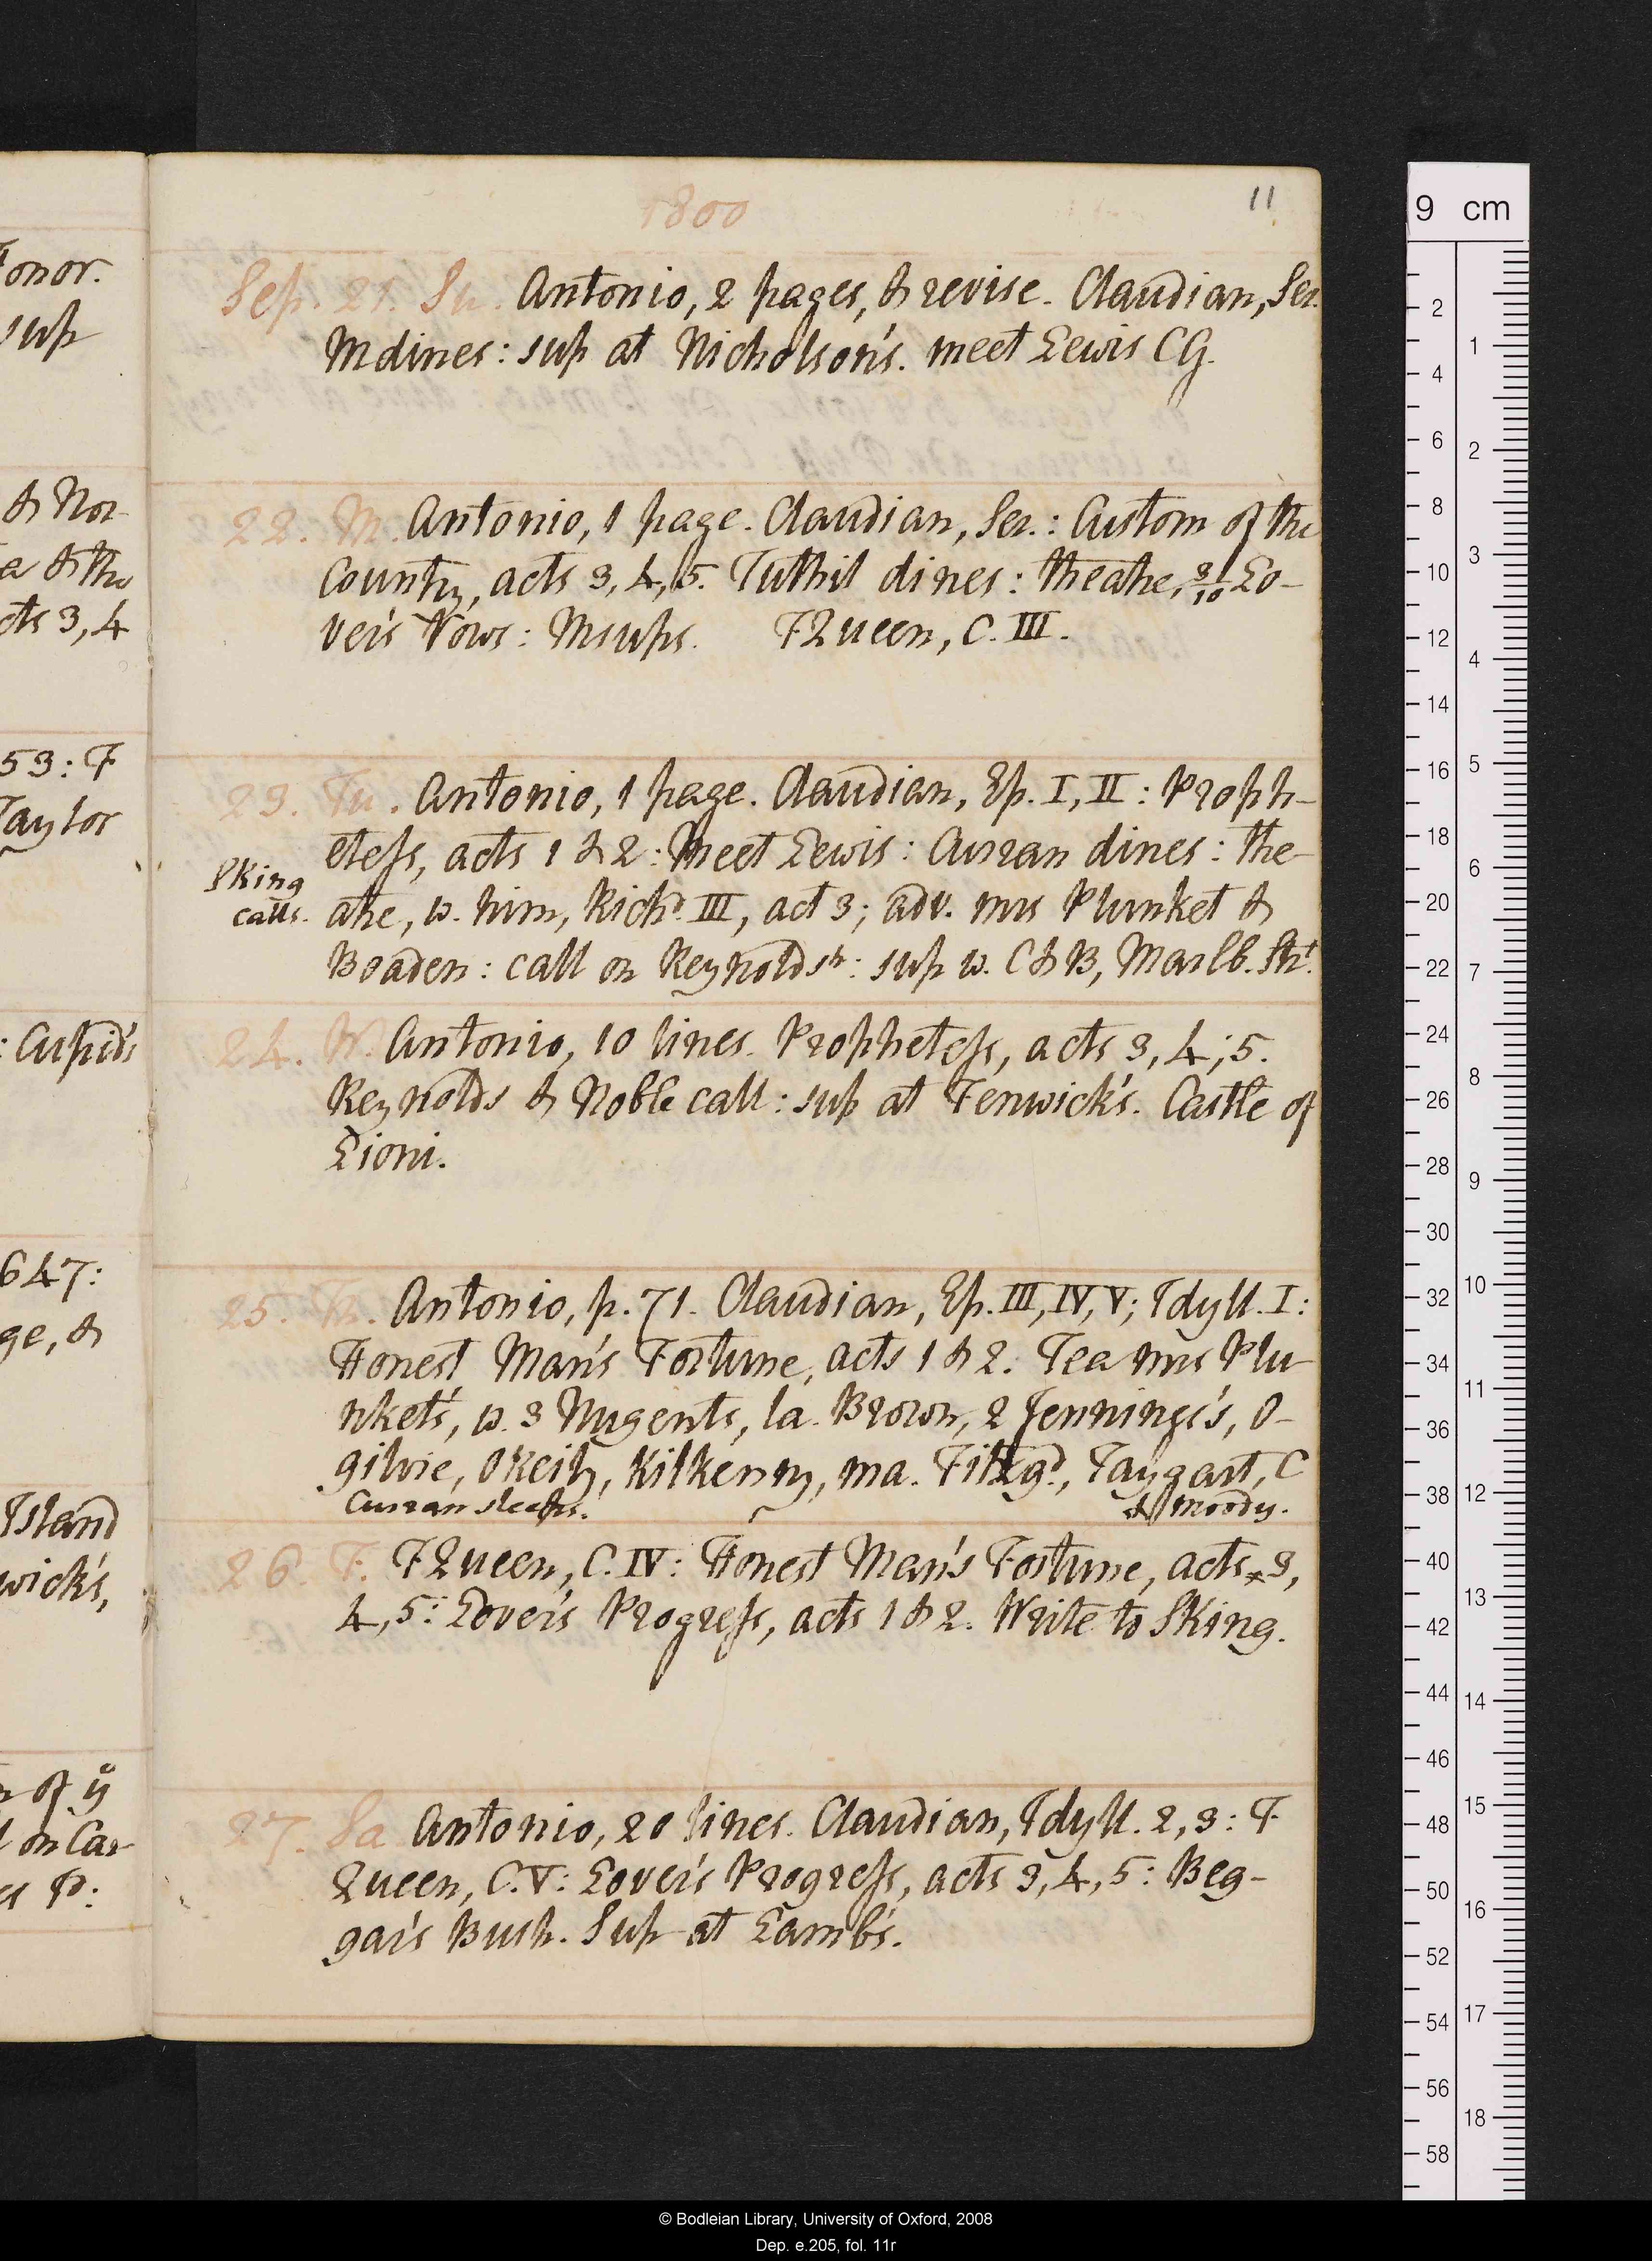 1800
11
Sep. 21. Su. Antonio, 2 pages, & revise. Claudian, Ser.
M dines: sup at Nicholson's. meet Lewis CG.
22. M. Antonio, 1 page. Claudian, Ser.: Custom of the
Country, acts 3, 4, 5. Tuthil dines: theatre, 3/10 Lo-
ver's Vows: M sups. F Queen, C. III.
23. Tu. Antonio, 1 page. Claudian, Ep. I, II: Proph-
etess, acts 1 & 2: Meet Lewis: Curran dines: the-
SKing
calls.
atre, w. him, Richd. III, act 3; adv. mrs Plunket &
Boaden: call on Reynolds: sup w. C & B, Marlb. Strt.
24. W. Antonio, 10 lines. Prophetess, acts 3, 4, 5.
Reynolds & Noble call: sup at Fenwick's. Castle of
Lioni.
25. Th. Antonio, p. 71. Claudian, Ep. III, IV, V; Idyll. I:
Honest Man's Fortune, acts 1 & 2. Tea mrs Plu-
nket's, w. 3 Nugents, la. Brown, 2 Jennings's, O-
gilvie, OKeily, Kilkenny, ma. Fitzgd., Taygart, C
Curran sleeps. & Moody.
26. F. F Queen, C. IV: Honest Man's Fortune, acts 3,
4, 5: Lover's Progress, acts 1 & 2. Write to SKing.
27. Sa. Antonio, 20 lines. Claudian, Idyll. 2, 3: F
Queen, C. V: Lover's Progress, acts 3, 4, 5: Beg-
gar's Bush. Sup at Lamb's.
onor.
sup
& Nor-
a & the
cts 3, 4
53: F
Taylor
: Cupid's
647:
ge, &
Island
wick's,
of ye
on Car-
9 cm
2
4
6
8
10
12
14
16
18
20
22
24
26
28
30
32
34
36
38
40
42
44
46
48
50
52
54
56
58
1
2
3
4
5
6
7
8
9
10
11
12
13
14
15
16
17
18
© Bodleian Library, University of Oxford, 2008
Dep. e.205, fol. 11r